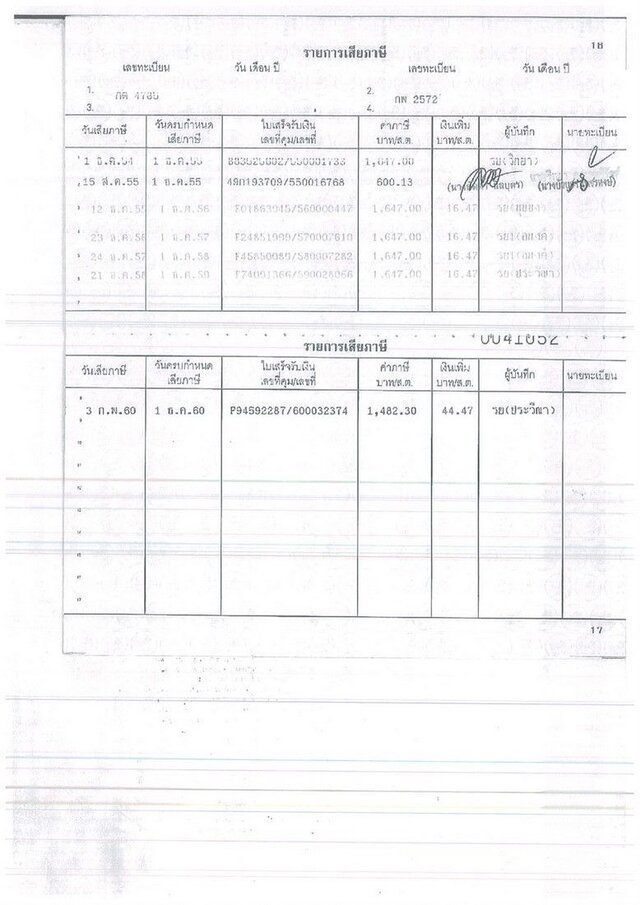 18
รายการเสียภาษี
เลขทะเบียน วัน เดือน ปี เลขทะเบียน วัน เดือน ปี
1. กต 4785 2. กพ 2572
3. 4.
วันเสียภาษี วันครบกำหนดเสียภาษี ใบเสร็จรับเงินเลขที่คุม/เลขที่ ค่าภาษีบาท/ส.ต. เงินเพิ่มบาท/ส.ต. ผู้บันทึก นายทะเบียน
1 ธ.ค.54 1 ธ.ค.55 1,647.00 รย(วิทยา)
15 ส.ค.55 1 ธ.ค.55 490193709/550016768 600.13
12 ธ.ค.55 1 ธ.ค.56 F01863945/560000447 1,647.00 16.47
23 ธ.ค.56 1 ธ.ค.57 F24851999/570007610 1,647.00 16.47
24 ธ.ค.57 1 ธ.ค.58 F45850089/580007282 1,647.00 16.47
21 ธ.ค.58 1 ธ.ค.59 F74091366/590028066 1,647.00 16.47 รย(ประวีณา)
0041052
รายการเสียภาษี
วันเสียภาษี วันครบกำหนดเสียภาษี ใบเสร็จรับเงินเลขที่คุม/เลขที่ ค่าภาษีบาท/ส.ต. เงินเพิ่มบาท/ส.ต. ผู้บันทึก นายทะเบียน
3 ก.พ.60 1 ธ.ค.60 F94592287/600032374 1,482.30 44.47 รย(ประวีณา)
17